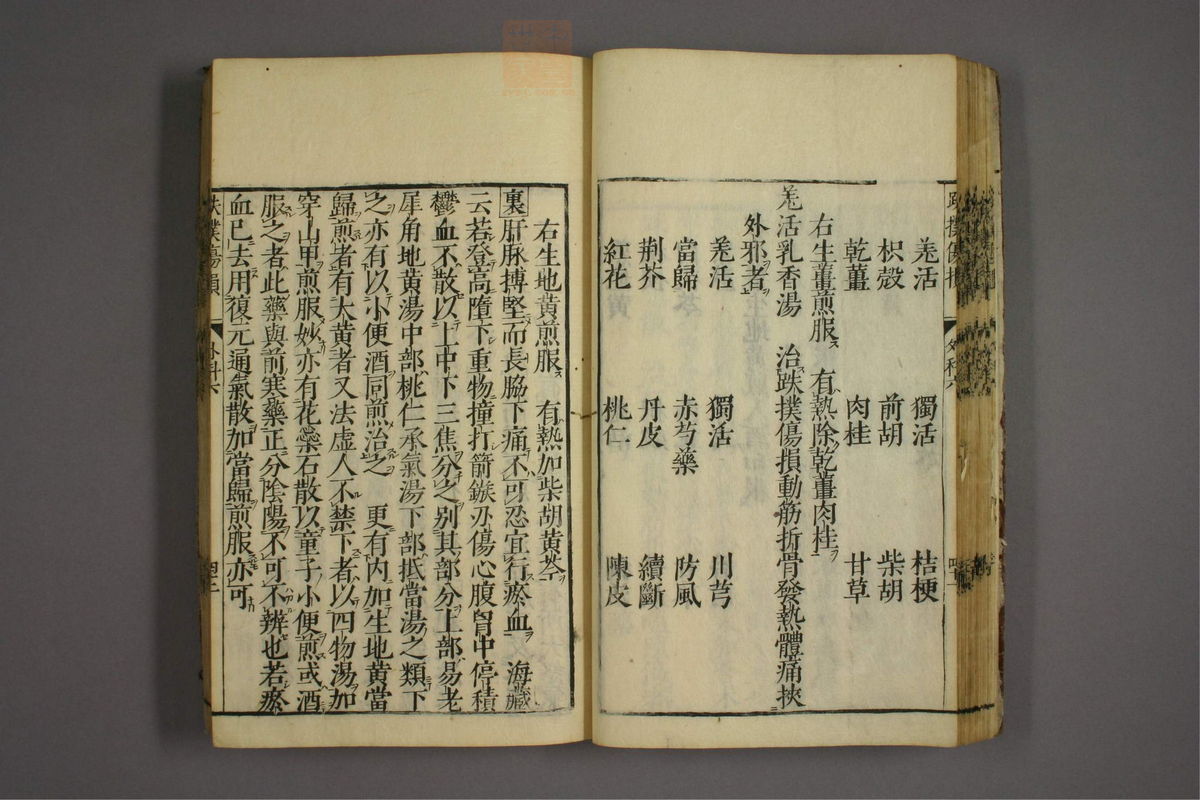 羗活　獨活　桔梗
枳殻　前胡　柴胡
乾薑　肉桂　甘草
右生薑煎服　有熱除乾薑肉桂
羗活乳香湯　治跌撲傷損動筋折骨發熱體痛挾
外邪者
羗活　獨活　川芎
當歸　赤芍藥　防風
荆芥　丹皮　續斷
紅花　桃仁　陳皮
右生地黄煎服　有熱加柴胡黄芩
裏肝脉搏堅而長脇下痛不可忍宜行瘀血　海藏
云若登高墮下重物撞打箭鏃刃傷心腹胷中停積
鬱血不散以上中下三焦分之别其部分上部易老
犀角地黄湯中部桃仁承氣湯下部抵當湯之類下
之亦有以小便酒同煎治之　更有内加生地黄當
歸煎者有大黄者又法虚人不禁下者以四物湯加
穿山甲煎服妙亦有花蘂石散以童子小便煎或酒
服之者此藥與前寒藥正分陰陽不可不辨也若瘀
血已去用復元通氣散加當歸煎服亦可
跌撲傷損　外科六